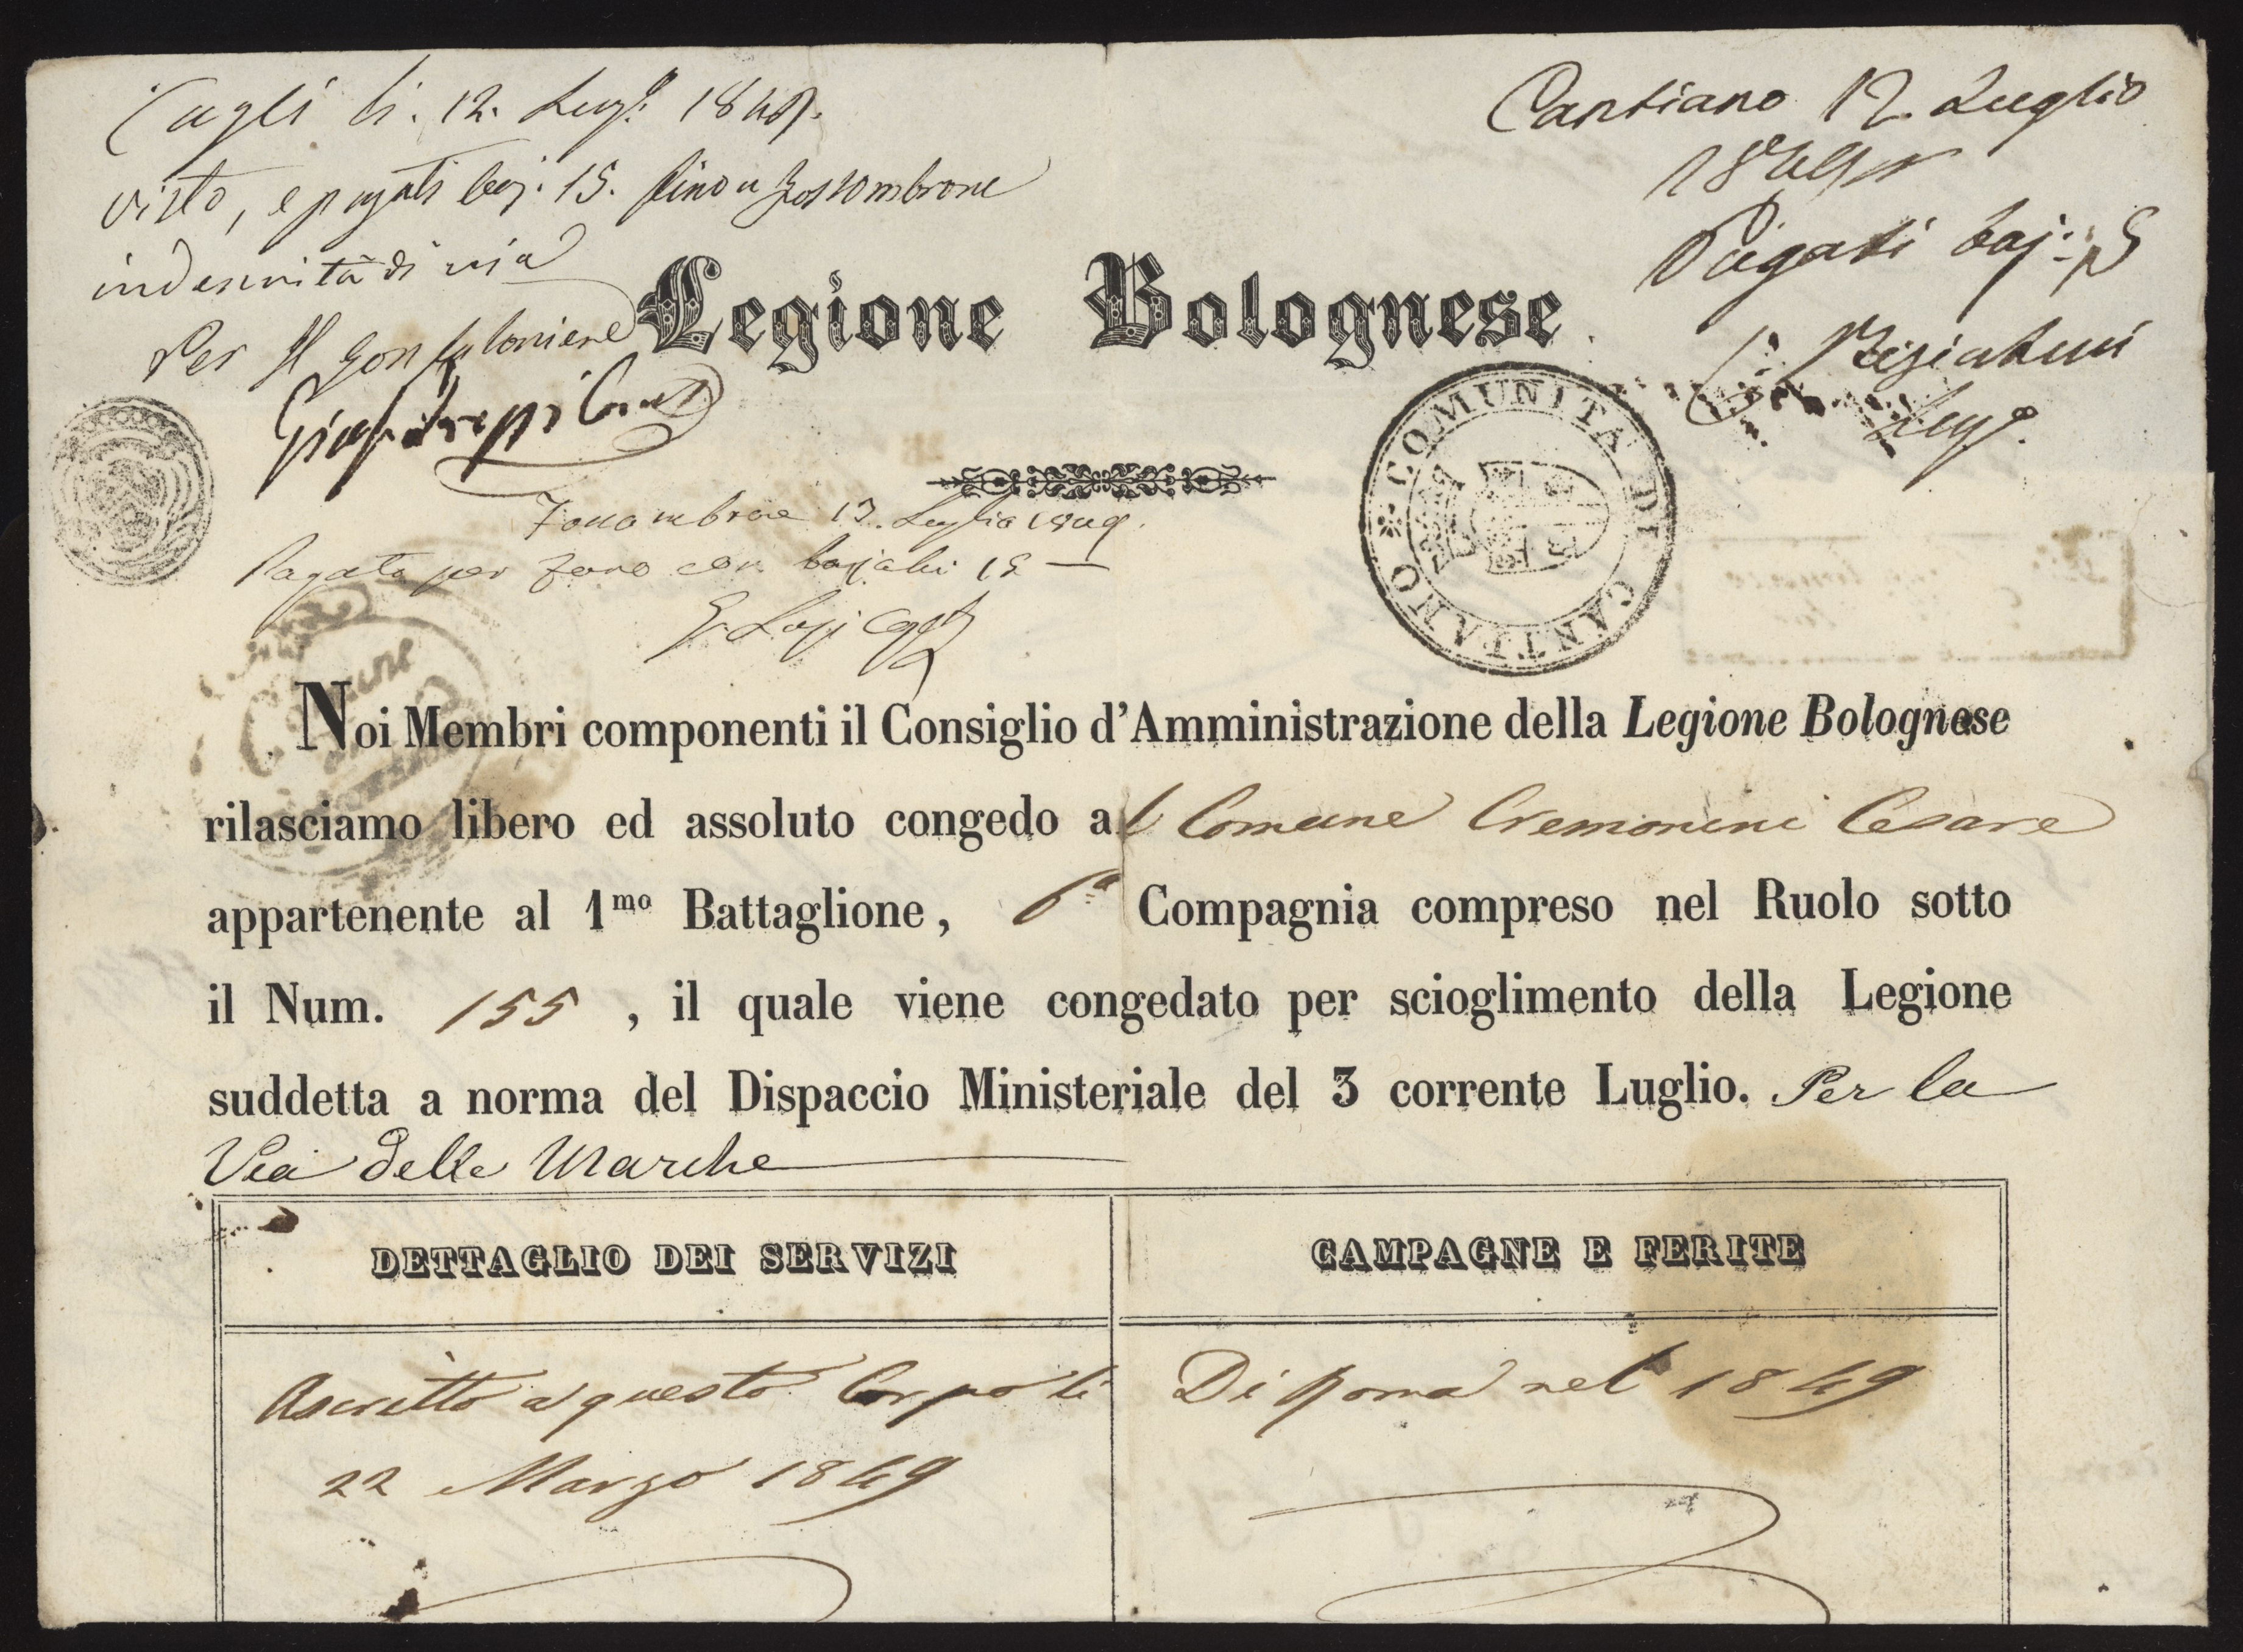 Cagli li. 12. Lugº. 1849.
visto, e pagati baj: 15. fino a Fossombrone
indennità di via
Per Il Gonfaloniere
Cantiano 12. Luglio
1849
Pagati baj:
Legione Bolognese
COMUNITA DI CANTIANO
Fossombrone 13. Luglio 1849.
Pagato per Fano con bajochi 15
Noi Membri componenti il Consiglio d'Amministrazione della Legione Bolognese
rilasciamo libero ed assoluto congedo al Comune Cremonini Cesare
appartenente al 1mo Battaglione, 6a Compagnia compreso nel Ruolo sotto
il Num. 155 , il quale viene congedato per scioglimento della Legione
suddetta a norma del Dispaccio Ministeriale del 3 corrente Luglio. Per la
Via delle Marche
DETTAGLIO DEI SERVIZI
CAMPAGNE E FERITE
Ascritto a questo Corpo li
22 Marzo 1849
Di Roma nel 1849